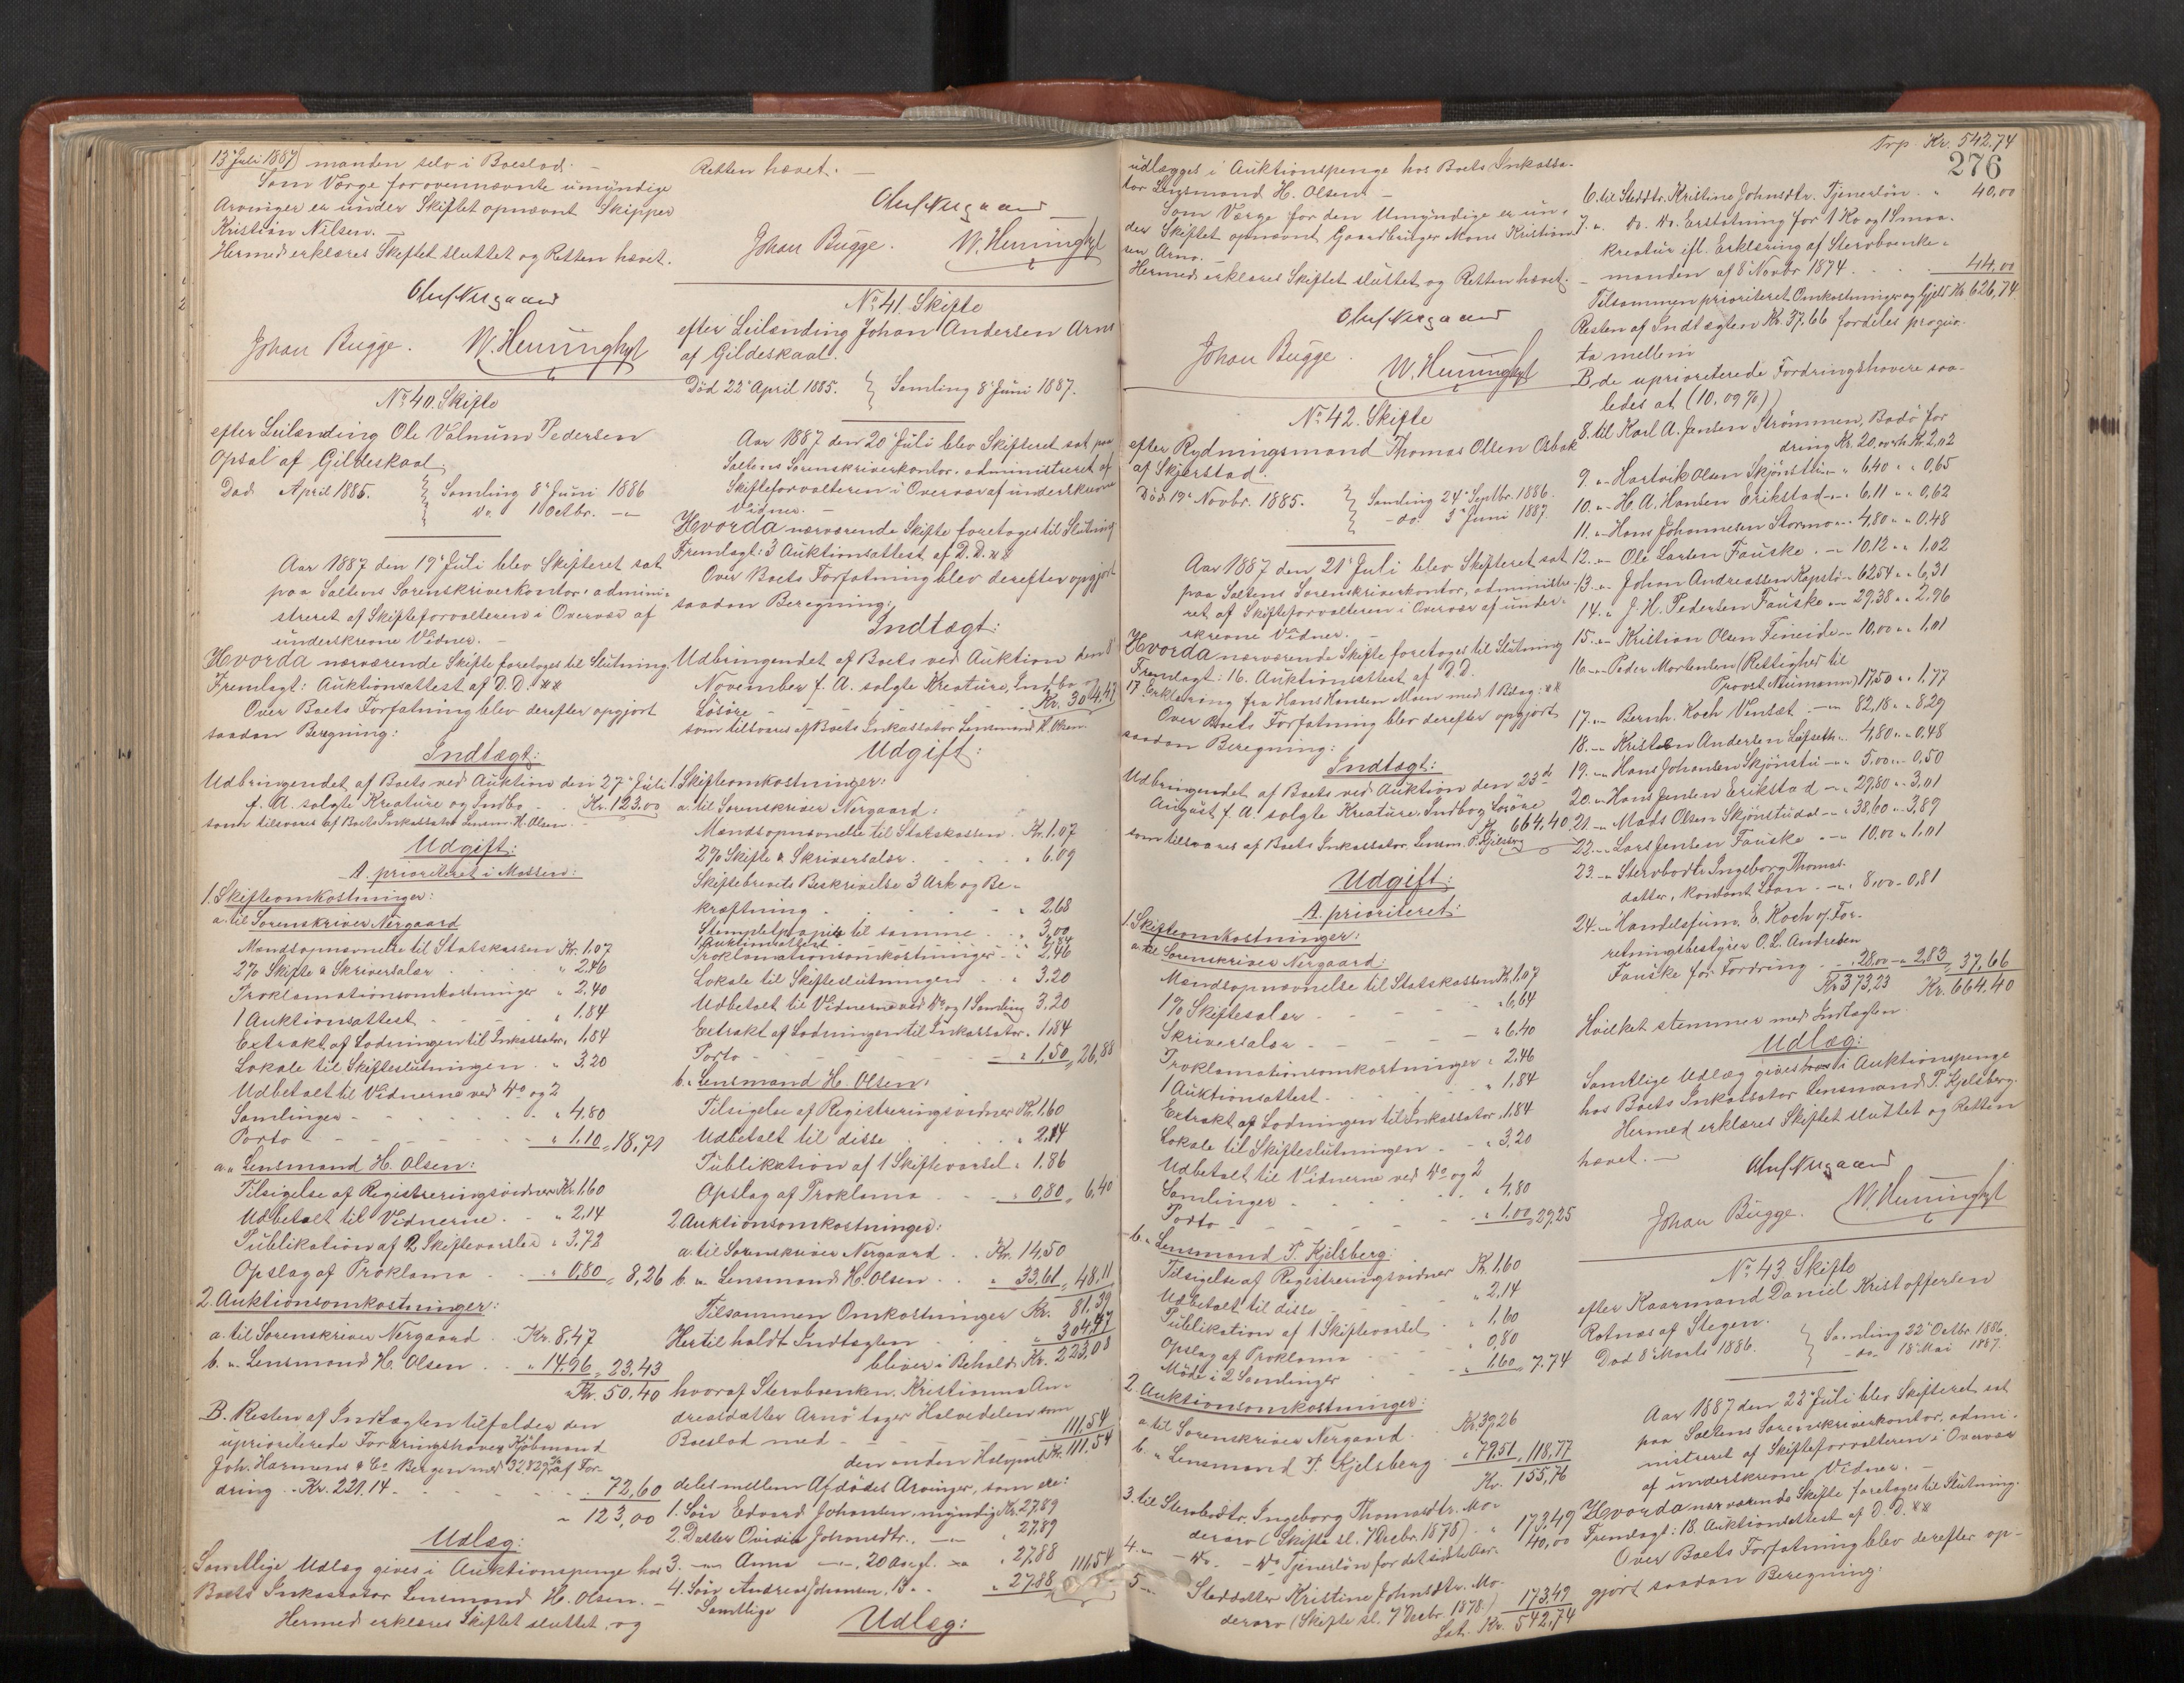 13' Juli 1887) manden selv i Boeslod. –
Som Værge for ovennævnte umyndige
Arvinger er under Skiftet opnævnt Skipper
Kristian Nilsen. –
Hermed erklæres Skiftet sluttet og Retten hævet.
Oluf Nergaard
Johan Bugge. W. Henninghyt
No 40. Skifte
efter Leilænding Ole Valnum Pedersen
Opsal af Gildeskaal
Død April 1885. } Samling 8' Juni 1886
} do. 1 Octbr. –"–
Aar 1887 den 19' Juli blev Skifteret sat
paa Saltens Sorenskriverkontor, admini-
streret af Skifteforvalteren i Overvær af
underskrevne Vidner. –
Hvorda nærværende Skifte foretoges til Slutning.
Fremlagt: Auktionsattest af D. D. **
Over Boets Forfatning blev derefter opgjort
saadan Beregning:
Indtægt:
Udbringendet af Boets ved Auktion den 27' Juli
f. A. solgte Kreature og Indbo - . Kr. 123.00
som tilsvares af Boets Inkassator Lensm. H. Olsen. –
Udgift:
A. prioriteret i Massen:
1. Skifteomkostninger:
a. til Sorenskriver Nergaard
Mandsopnævnelse til Statskassen Kr. 1,07
2% Skifte & Skriversalær . " 2.46
Proklamationsomkostninger " 2,40
1 Auktionsattest " 1.84
Extrakt af Lodningen til Inkassator " 1,84
Lokale til Skifteslutningen . " 3,20
Udbetalt til Vidnerne ved do og 2
Samlinger - " 4,80
Porto - " 1,10 " 18,71
a. " Lensmand H. Olsen:
Tilsigelse af Registreringsvidner Kr. 1,60
Udbetalt til Vidnerne. - " 2,14
Publikation af 2 Skiftevarsler " 3,72
Opslag af Proklama " 0,80 " 8,26
2. Auktionsomkostninger:
a. til Sorenskriver Nergaard . Kr. 8,47
b. " Lensmand H. Olsen . . " 14,96 " 23,43
Kr. 50.40
B. Resten af Indtægten tilfalder den
uprioriterede Fordringshaver Kjøbmand
Joh. Harmens & Co Bergen med 32,829% af For-
dring - Kr. 221.14 - 72,60
" 123,00
Udlæg:
Samtlige Udlæg gives i Auktionspenge hos
Boets Inkassator Lensmand H. Olsen. –
Hermed erklæres Skiftet sluttet, og
Retten hævet. –
Oluf Nergaard
Johan Bugge. W. Henninghyt
No 41. Skifte
efter Leilænding Johan Andersen Arnø
af Gildeskaal.
Død 22' April 1885. } Samling 8' Juni 1887.
Aar 1887 den 20' Juli blev Skifteret sat paa
Saltens Sorenskriverkontor, administreret af
Skifteforvalteren i Overvær af underskrevne
Vidner. –
Hvorda nærværende Skifte foretoges til Slutning
Fremlagt: 3 Auktionsattest af D. D. **
Over Boets Forfatning blev derefter opgjort
saadan Beregning:
Indtægt:
Udbringendet af Boets ved Auktion den 8'
November f. A. solgte Kreature, Indbo og
Løsøre - Kr. 304,47
som tilsvares af Boets Inkassator Lensmand H. Olsen
Udgift:
1. Skifteomkostninger:
a. til Sorenskriver Nergaard:
Mandsopnævnelse til Statskassen. Kr. 1,07
2% Skifte & Skriversalær. " 6.09
Skiftebrevets Beskrivelse 3 Ark og Be-
kræftning " 2,68
Stempletpapir til samme " 3,00
1 Auktionsattest " 1,84
Proklamationsomkostninger " 2,46
Lokale til Skifteslutningen " 3,20
Udbetalt til Vidnerne ved do og 1 Samling 3,20
Extrakt af Lodningen til Inkassator. 1,84
Porto - " 1,50 " 26,88
b. " Lensmand H. Olsen:
Tilsigelse af Registreringsvidner Kr. 1,60
Udbetalt til disse " 2,14
Publikation af 1 Skiftevarsel " 1,86
Opslag af Proklama - " 0,80 " 6,40
2 Auktionsomkostninger:
a. til Sorenskriver Nergaard . . Kr. 14,50
b. " Lensmand H. Olsen . . " 33,61 " 48,11
Tilsammen Omkostninger Kr. 81,39
Hertil holdt Indtægten " 304,47
bliver i Behold Kr. 223,08
hvoraf Stervboenken, Kristianna An-
dreasdatter Arnø tager Halvdelen som
Boeslod med - 111,54
den anden Halvpart Kr. 111,54
deles mellem Afdødes Arvinger, som ere:
1. Søn Edvard Johansen, myndig Kr. 27,89
2. Datter Ovidia Johansdtr. –"– " 27,89
3. –"– Anna –"–, 20 Aar gl. " 27,88
4. Søn Andreas Johansen, 13 " " 27,88 111,54
Samtlige
Udlæg:
udlægges i Auktionspenge hos Boets Inkassa-
tor Lensmand H. Olsen. –
Som Værge for den Umyndige er un-
der Skiftet opnævnt Gaardbruger Mons Kristian-
sen Arnø. –
Hermed erklæres Skiftet sluttet og Retten hævet. –
Oluf Nergaard
Johan Bugge. W. Henninghyt
No 42. Skifte
efter Rydningsmand Thomas Olsen Osbak
af Skjerstad.
Død 19' Novbr. 1885. } Samling 24' Septbr. 1886.
} - do. 3' Juni 1887.
Aar 1887 den 21' Juli blev Skifteret sat
paa Saltens Sorenskriverkontor, administre-
ret af Skifteforvalteren i Overvær af under-
skrevne Vidner. –
Hvorda nærværende Skifte foretoges til Slutning
Fremlagt: 16. Auktionsattest af D. D.
17. Erklæring fra Hans Hansen Moen med 1 Bilag: **
Over Boets Forfatning blev derefter opgjort
saadan Beregning:
Indtægt:
Udbringendet af Boets ved Auktion den 23de
August f. A. solgte Kreature Indbo og Løsøre
Kr. 664,40
som tilsvares af Boets Inkassator, Lensm. P. Kjelsberg
Udgift:
A. prioriteret:
1. Skifteomkostninger:
a. til Sorenskriver Nergaard:
Mandsopnævnelse til Statskassen Kr. 1,07
1% Skiftesalær - " 6,64
Skriversalær - " 6.40
Proklamationsomkostninger " 2,46
1 Auktionsattest - " 1,84
Extrakt af Lodningen til Inkassator. 1,84
Lokale til Skifteslutningen - " 3,20
Udbetalt til Vidnerne ved do og 2
Samlinger " 4,80
Porto - " 1,00 " 29,25
b. " Lensmand P. Kjelsberg:
Tilsigelse af Registreringsvidner Kr. 1,60
Udbetalt til disse - " 2,14
Publikation af 1 Skiftevarsel " 1,60
Opslag af Proklama " 0,80
Møde i 2 Samlinger " 1,60 " 7,74
2. Auktionsomkostninger:
a. til Sorenskriver Nergaard . Kr. 39,26
b. " Lensmand P. Kjelsberg " 79,51 " 118,77
Kr. 155,76
3. til Stervbodtr. Ingeborg Thomasdtr. Mo-
derarv (Skifte sl. 7 Decbr. 1878) . " 173,49
4. " – do. – do Tjenerløn for det sidste Aar. 40,00
5 –"– Steddatter Kristine Johnsdtr. Mo-
derarv (Skifte sl. 7 Decbr. 1878.) 173,49
Lat. Kr. 542,74
Trp. Kr. 542,74
276
6. til Steddtr. Kristine Johnsdtr. Tjenerløn . " 40,00
7. " do. do. Erstatning for 1 Ko og 1 Smaa-
kreatur ifl. Erklæring af Stervboenke-
manden af 8' Novbr 1874. 44,00
Tilsammen prioriteret Omkostninger og Gjeld Kr. 626,74
Resten af Indtægten Kr. 37,66 fordeles proqvo-
ta mellem
B, de uprioriterede Fordringshavere saa-
ledes at (10.09%)
8. til Karl A. Jensen Strømmen, Bodø for
dring Kr. 20,00 erh. Kr. 2,02
9. " Hartvik Olsen Skjønstu " 6,40 " " 0,65
10. –"– H. A. Hansen Erikstad –"– 6,11 " " 0,62
11. –"– Hans Johannesen Stormo –"– 4,80 " " 0,48
12. –"– Ole Larsen Fauske . –"– 10,12 " " 1,02
13. –"– Johan Andreassen Kapstø –"– 62,54 " " 6,31
14. " J. H. Pedersen Fauske –"– 29,38 " " 2,96
15. –"– Kristian Olsen Fineide –"– 10,00 " " 1,01
16. –"– Peder Mortensen (Rettighed til
Provst Neumann) 17,50 " " 1,77
17. –"– Bernh. Koch Vensæt . –"– 82,18 " " 8,29
18. –"– Kristen Andersen Løfseth –"– 4,80 " " 0,48
19. –"– Hans Johansen Skjønstu –"– 5,00 " – 0,50
20. –"– Hans Jensen Erikstad –"– 29,80 " " 3,01
21. –"– Mads Olsen Skjønstudal –"– 38,60 " " 3,89
22. –"– Lars Jensen Fauske –"– 10,00 " " 1,01
23. –"– Stervbodtr. Ingeborg Thomas-
datter, kontant Laan . –"– " 8,00 - 0,81
24. –"– Handelsfirm. E. Koch v/ For-
retningsbestyrer O. L. Andresen
Fauske for Fordring - " 28,00 " 2,83 " 37,66
Kr. 373,23 Kr. 664.40
Hvilket stemmer med Indtægten.
Udlæg:
Samtlige Udlæg gives i Auktionspenge
hos Boets Inkassator Lensmand P. Kjelsberg.
Hermed erklæres Skiftet sluttet og Retten
hævet. –
Oluf Nergaard
Johan Bugge. W. Henninghyt
No 43 Skifte
efter Kaarmand Daniel Kristoffersen
Rotnæs af Stegen.
Død 8' Marts 1886. } Samling 22' Octbr 1886.
} – do. 18' Mai 1887.
Aar 1887 den 22' Juli blev Skifteret sat
paa Saltens Sorenskriverkontor, admi-
nistreret af Skifteforvalteren i Overvær
af underskrevne Vidner. –
Hvorda nærværende Skifte foretoges til Slutning.
Fremlagt: 18. Auktionsattest af D. D. **
Over Boets Forfatning blev derefter op-
gjort saadan Beregning: